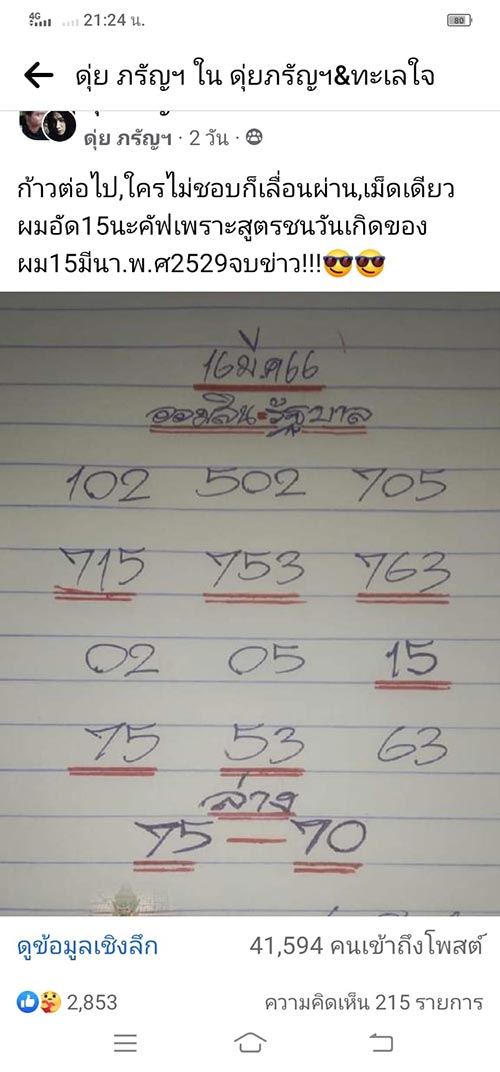 4G 21:24 น. 80
ดุ่ย ภรัญฯ ใน ดุ่ยภรัญฯ&ทะเลใจ
ดุ่ย ภรัญฯ · 2 วัน ·
ก้าวต่อไป,ใครไม่ชอบก็เลื่อนผ่าน,เม็ดเดียว
ผมอัด15นะคัฟเพราะสูตรชนวันเกิดของ
ผม15มีนา.พ.ศ2529จบข่าว!!!😎😎
16มีค66
ออมสิน-รัฐบาล
102 502 705
715 753 763
02 05 15
75 53 63
ล่าง
75 — 70
ดูข้อมูลเชิงลึก 41,594 คนเข้าถึงโพสต์
2,853 ความคิดเห็น 215 รายการ